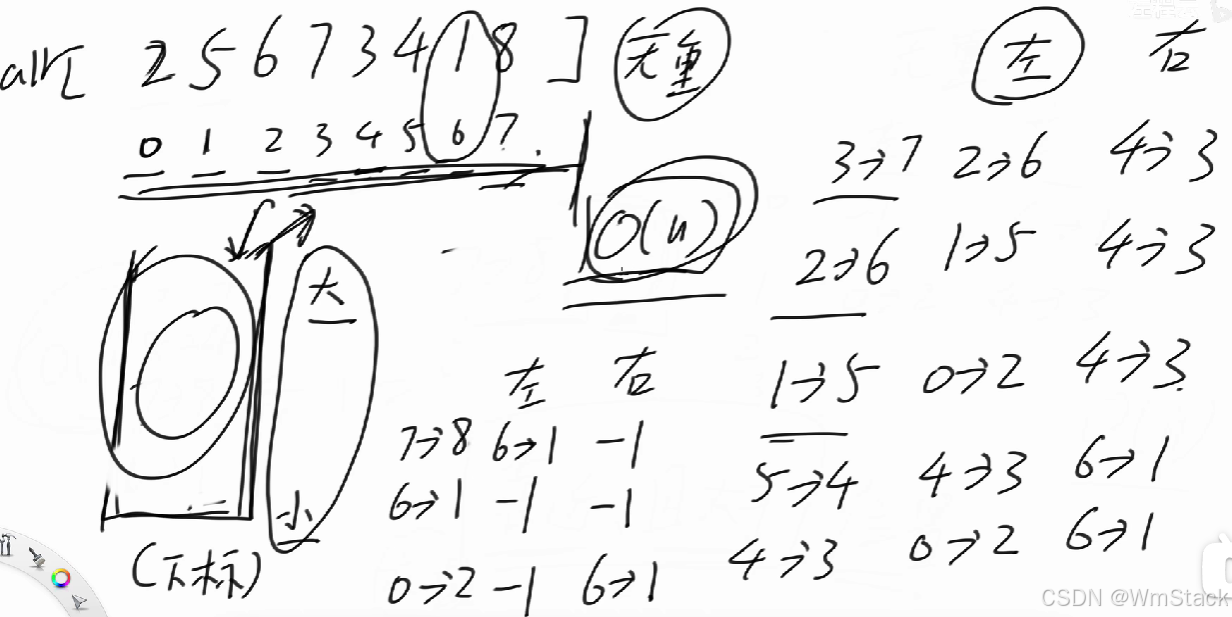 arr[ 2 5 6 7 3 4 1 8 ] 无重
0 1 2 3 4 5 6 7
O(n)
大
小
(下标)
左 右
7→8 6→1 -1
6→1 -1 -1
0→2 -1 6→1
左 右
3→7 2→6 4→3
2→6 1→5 4→3
1→5 0→2 4→3
5→4 4→3 6→1
4→3 0→2 6→1
CSDN @WmStack